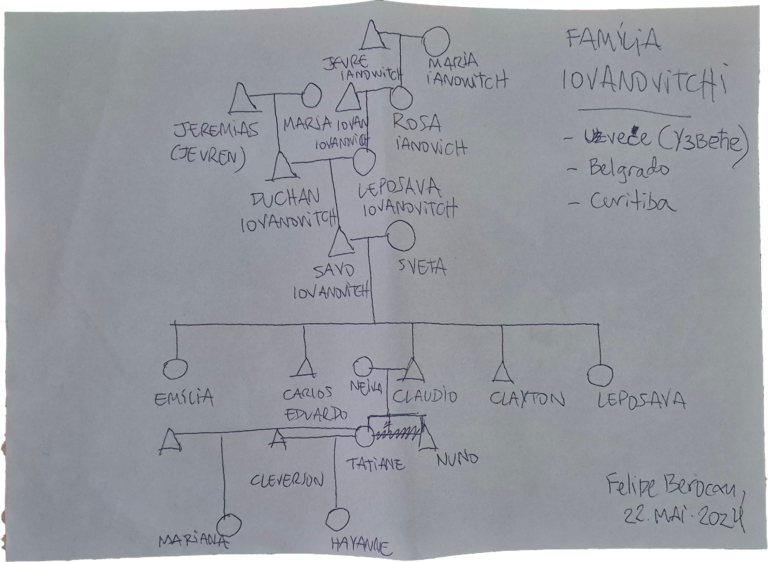 FAMÍLIA
IOVANOVITCHI
- Uzveće (Узвеће)
- Belgrado
- Curitiba
JEVRE
IANOWITCH
MARIA
IANOWITCH
JEREMIAS
(JEVREN)
MARIA
IOVAN
IOVANOVICH
ROSA
IANOVICH
DUCHAN
IOVANOVITCH
LEPOSAVA
IOVANOVITCH
SAVO
IOVANOVITCH
SVETA
EMÍLIA
CARLOS
EDUARDO
NEIVA
CLAUDIO
CLAYTON
LEPOSAVA
CLEVERSON
TATIANE
NUNO
MARIANA
HAYANNE
Felipe Berocan,
22.MAI.2024